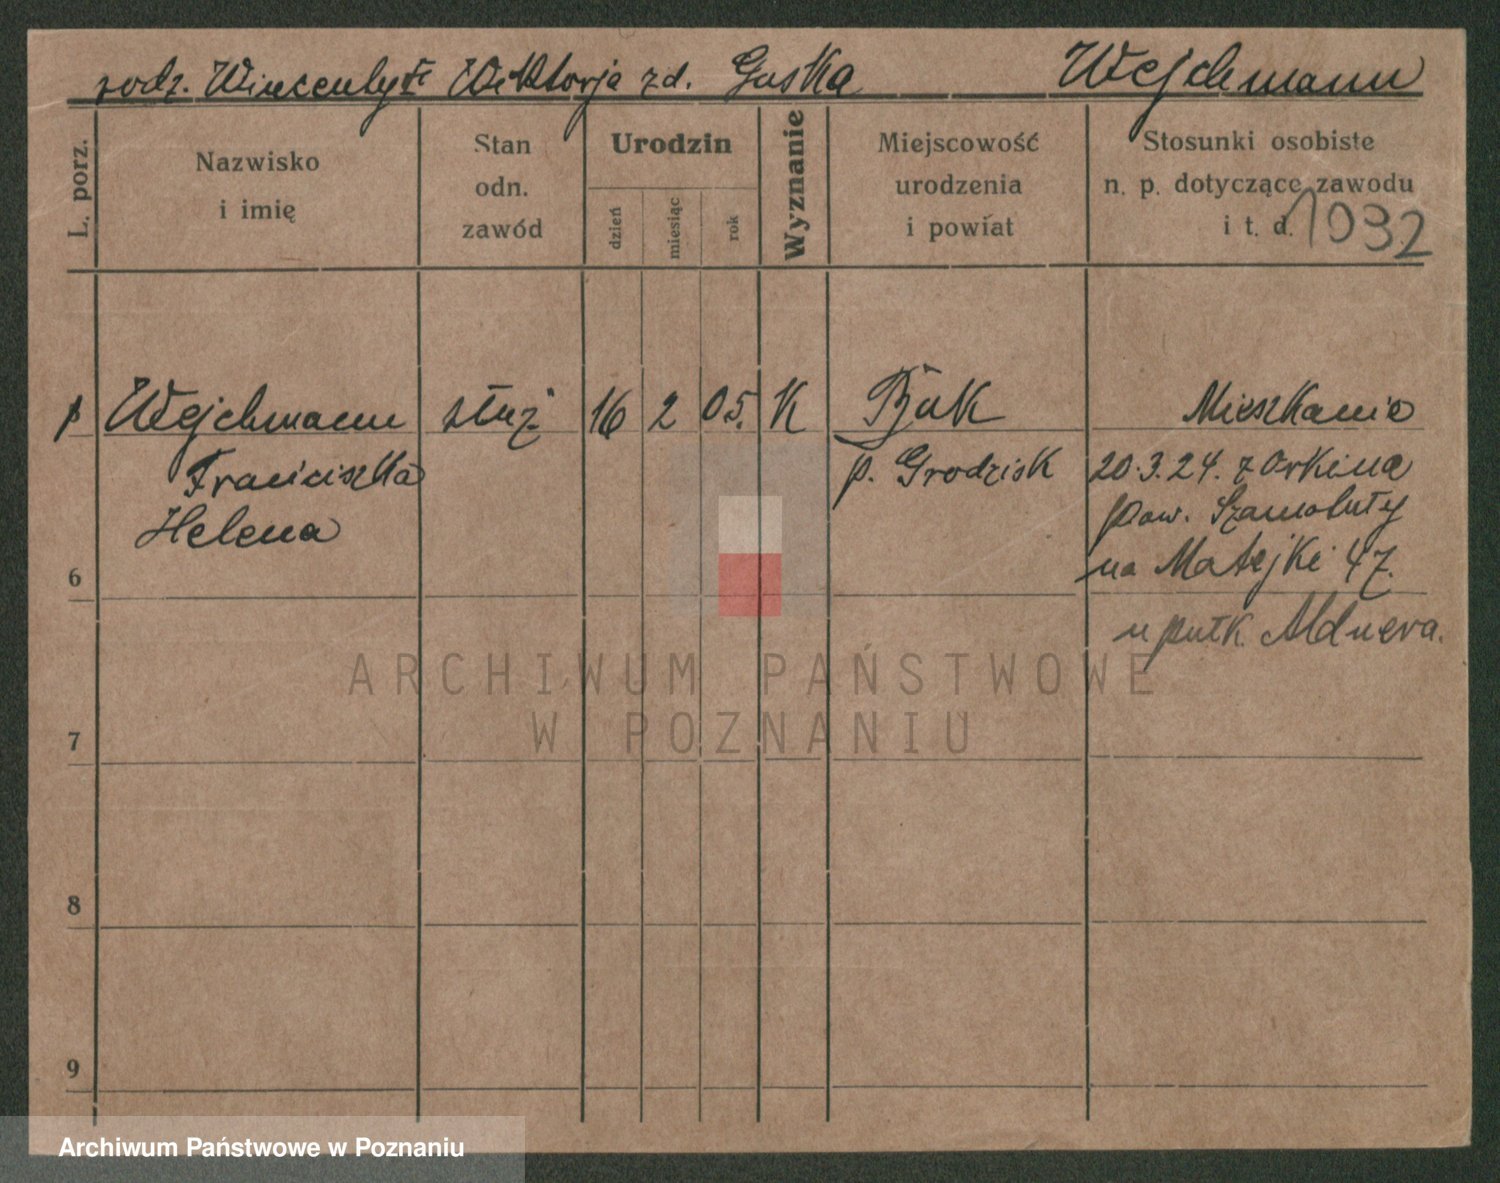 rodz. Wincenty i Wiktorja z d. Guska
Wejchmann
L. porz.
Nazwisko
i imię
Stan
odn.
zawód
Urodzin
dzień
miesiąc
rok
Wyznanie
Miejscowość
urodzenia
i powiat
Stosunki osobiste
n. p. dotyczące zawodu
i t. d.
1932
Wejchmann służ 16 2 05. K Buk Mieszkanie
Franciszka p. Grodzisk 20.3.24. z
Helena pow. Szamotuły
na Matejki 47.
u pułk.
6
7
8
9
ARCHIWUM PAŃSTWOWE
W POZNANIU
Archiwum Państwowe w Poznaniu